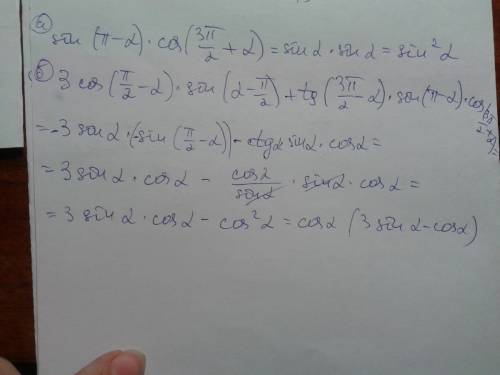 а) sin (π-α) · cos (3π/2 + α) = sin α · sin α = sin² α
б) 3 cos (π/2 - α) · sin (α - π/2) + tg (3π/2 - α) · sin (π - α) · cos (3π/2 + α) =
= -3 sin α · (-sin (π/2 - α)) - ctg α sin α · cos α =
= 3 sin α · cos α - cos α / sin α · sin α · cos α =
= 3 sin α · cos α - cos² α = cos α (3 sin α - cos α)